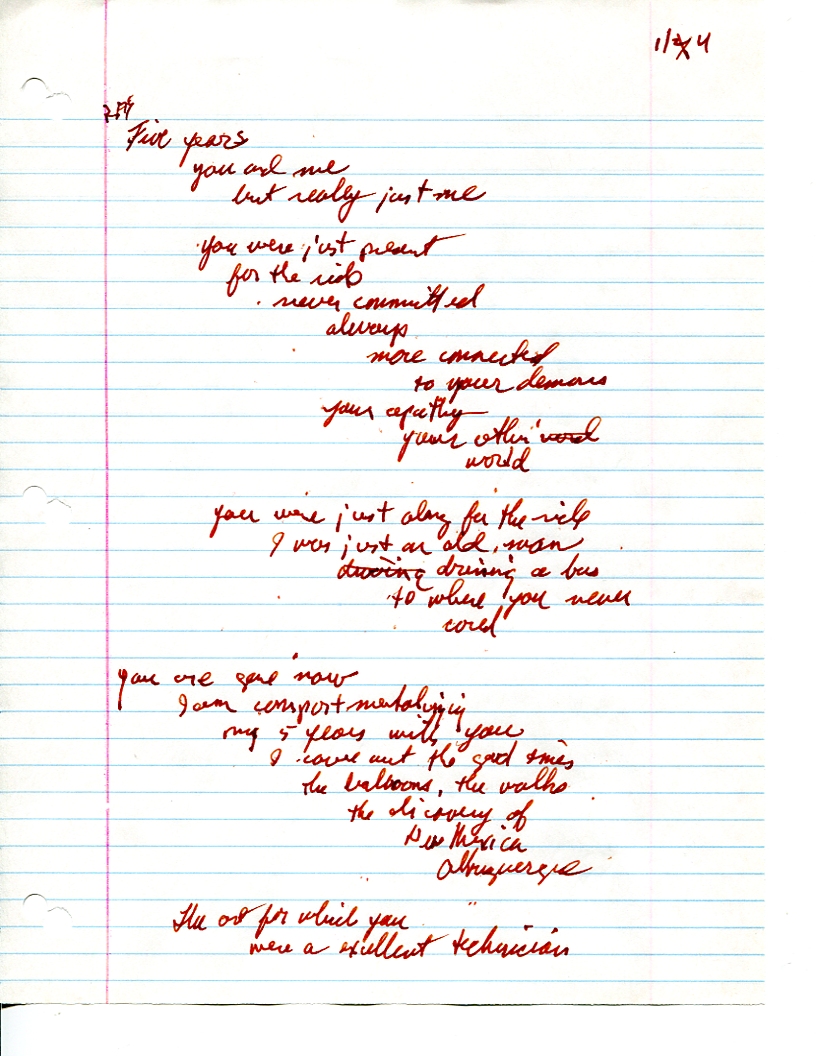 Five years
you and me
but really just me
you were just present
for the ride
never committed
always
more connected
to your demons
your apathy
your other
world
you were just along for the ride
I was just an old man
driving a bus
to where you never
cared
you are gone now
I am compartmentalizing
my 5 years with you
I carve out the good times
the balloons, the walks
the discovery of
New Mexico
Albuquerque
The art for which you
were a excellent technician